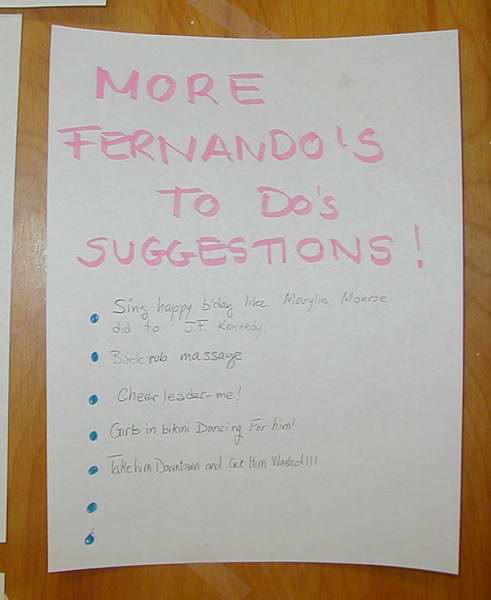 MORE
FERNANDO'S
TO DO'S
SUGGESTIONS!
Sing happy b'day like Marylin Monroe
did to J.F. Kennedy
Back rub massage
Cheerleader-me!
Girls in bikini Dancing For him!
Take him Downtown and Get Him Wasted!!!